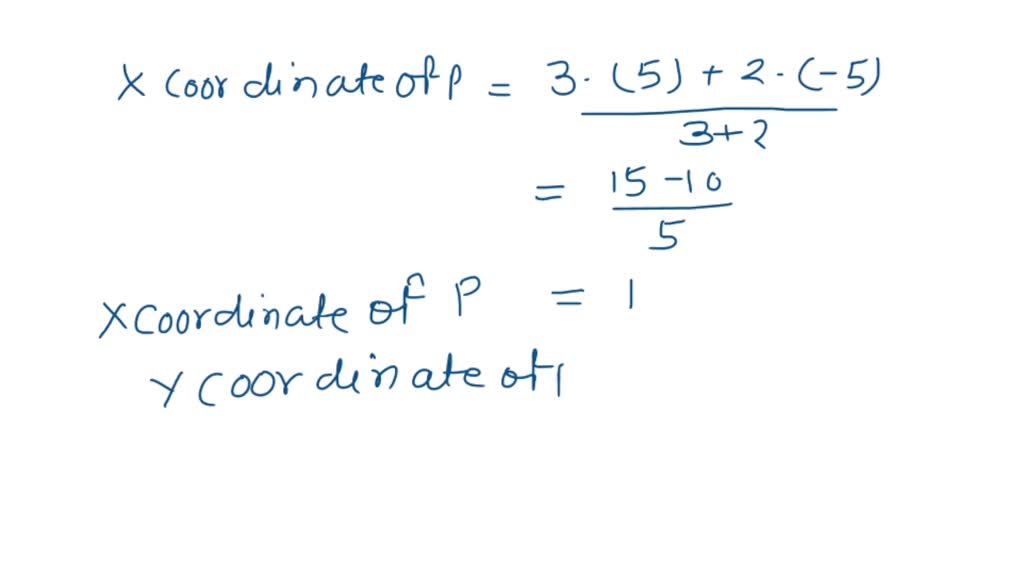 X Coordinate of P = 3·(5) + 2·(-5)
3+2
= 15-10
5
X Coordinate of P = 1
Y Coordinate of